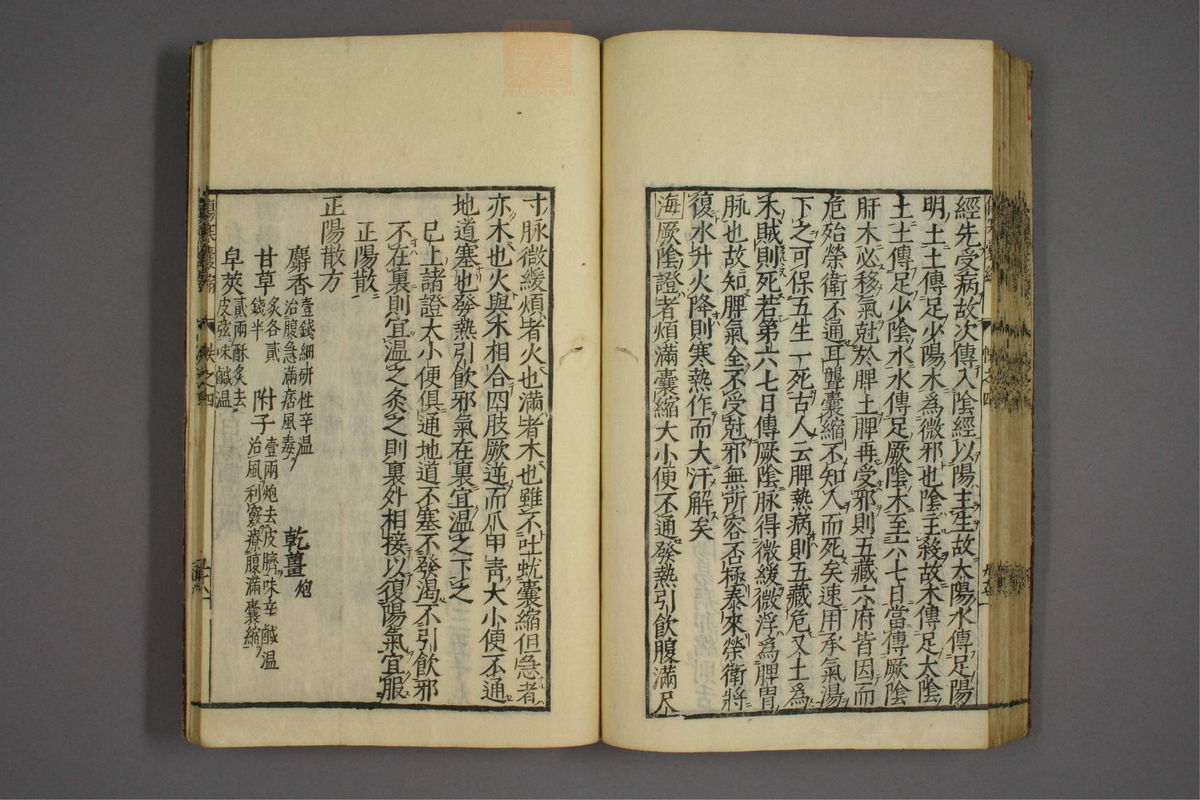 經先受病故次傳入陰經以陽主生故太陽水傳足陽
明土土傳足少陽木爲微邪也陰主殺故木傳足太陰
土土傳足少陰水水傳足厥陰木至六七日當傳厥陰
肝木必移氣尅於脾土脾再受邪則五藏六府皆因而
危殆榮衛不通耳聾囊縮不知人而死矣速用承氣湯
下之可保五生一死古人云脾熱病則五藏危又土爲
木賊則死若第六七日傳厥陰脉得微緩微浮爲脾胃
脉也故知脾氣全不受尅邪無所容否極泰來榮衛將
復水升火降則寒熱作而大汗解矣
海厥陰證者煩滿囊縮大小便不通發熱引飲腹滿尺
寸脉微緩煩者火也滿者木也雖不吐蚘囊縮但急者
亦木也火與木相合四肢厥逆而爪甲青大小便不通
地道塞也發熱引飲邪氣在裏宜溫之下之
已上諸證大小便俱通地道不塞不發渴不引飲邪
不在裏則宜溫之灸之則裏外相接以復陽氣宜服
正陽散
正陽散方
麝香壹錢細研性辛温治腹急滿痞風毒 乾薑炮
甘草炙各貳錢半 附子壹兩炮去皮臍味辛鹹温治風利竅療腹滿囊縮
皁莢貳兩酥炙去皮弦味鹹温